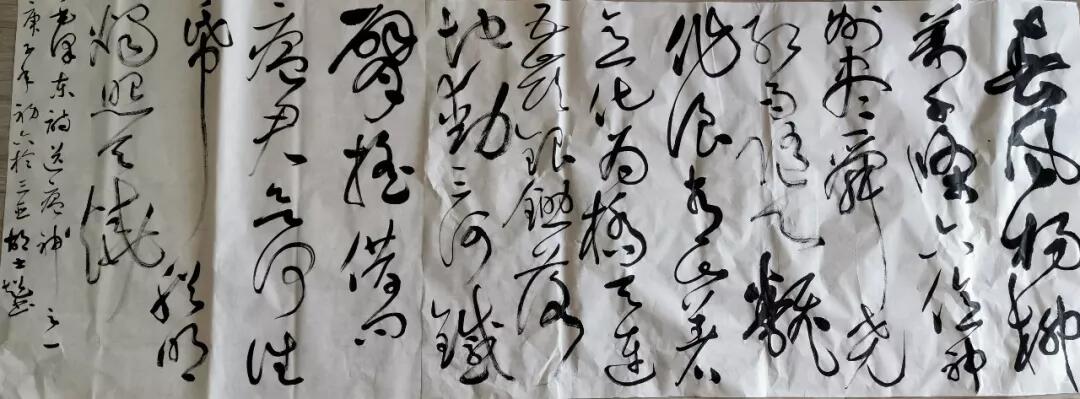 春风杨柳
万千條六億神
州尽舜尧
红雨随心翻
作浪青山着
意化为橋天连
五岺银锄落
地動三河鐵
臂摇借问
瘟君欲何往
帋船明
燭照天烧
毛泽东诗送瘟神之一
庚子年初六於三亚